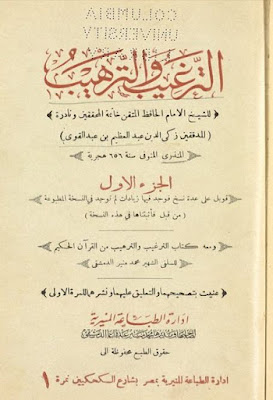 COLUMBIA
UNIVERSITY
الترغيب والترهيب
للشيخ الامام الحافظ المتقن خاتمة المحققين ونادرة
( المدققين زكي الدين عبد العظيم بن عبد القوي )
المنذري المتوفى سنة ٦٥٦ هجرية
الجزء الاول
قوبل على عدة نسخ فوجد فيها زيادات لم توجد في النسخة المطبوعة
( من قبل فأثبتناها في هذه النسخة )
ومعه كتاب الترغيب والترهيب من القرآن الحكيم
للسلفي الشهير محمد منير الدمشقي
عنيت بتصحيحها والتعليق عليها ونشرها للمرة الاولى
ادارة الطباعة المنيرية
حقوق الطبع محفوظة الى
ادارة الطباعة المنيرية بمصر بشارع الكحكيين نمرة ١